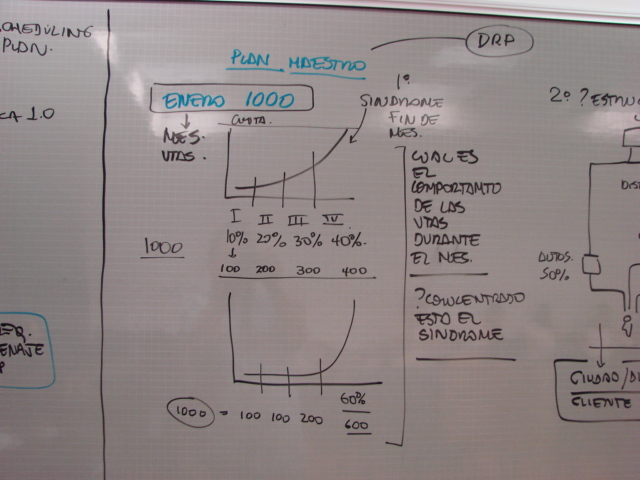 SCHEDULING
PLAN.
CA 1.0
ENAJE
PLAN MAESTRO
DRP
ENERO 1000
CUOTA.
MES.
VTAS.
1º
SINDROME
FIN DE
MES.
I II III IV
10% 20% 30% 40%.
1000
100 200 300 400
CUAL ES
EL
COMPORTAMTO
DE LAS
VTAS
DURANTE
EL MES.
?CONCENTRADO
ESTO EL
SINDROME
60%
1000 = 100 100 200 600
2º ?ESTRUC
DIST
AUTOS.
50%
CIUDAD/DI
CLIENTE